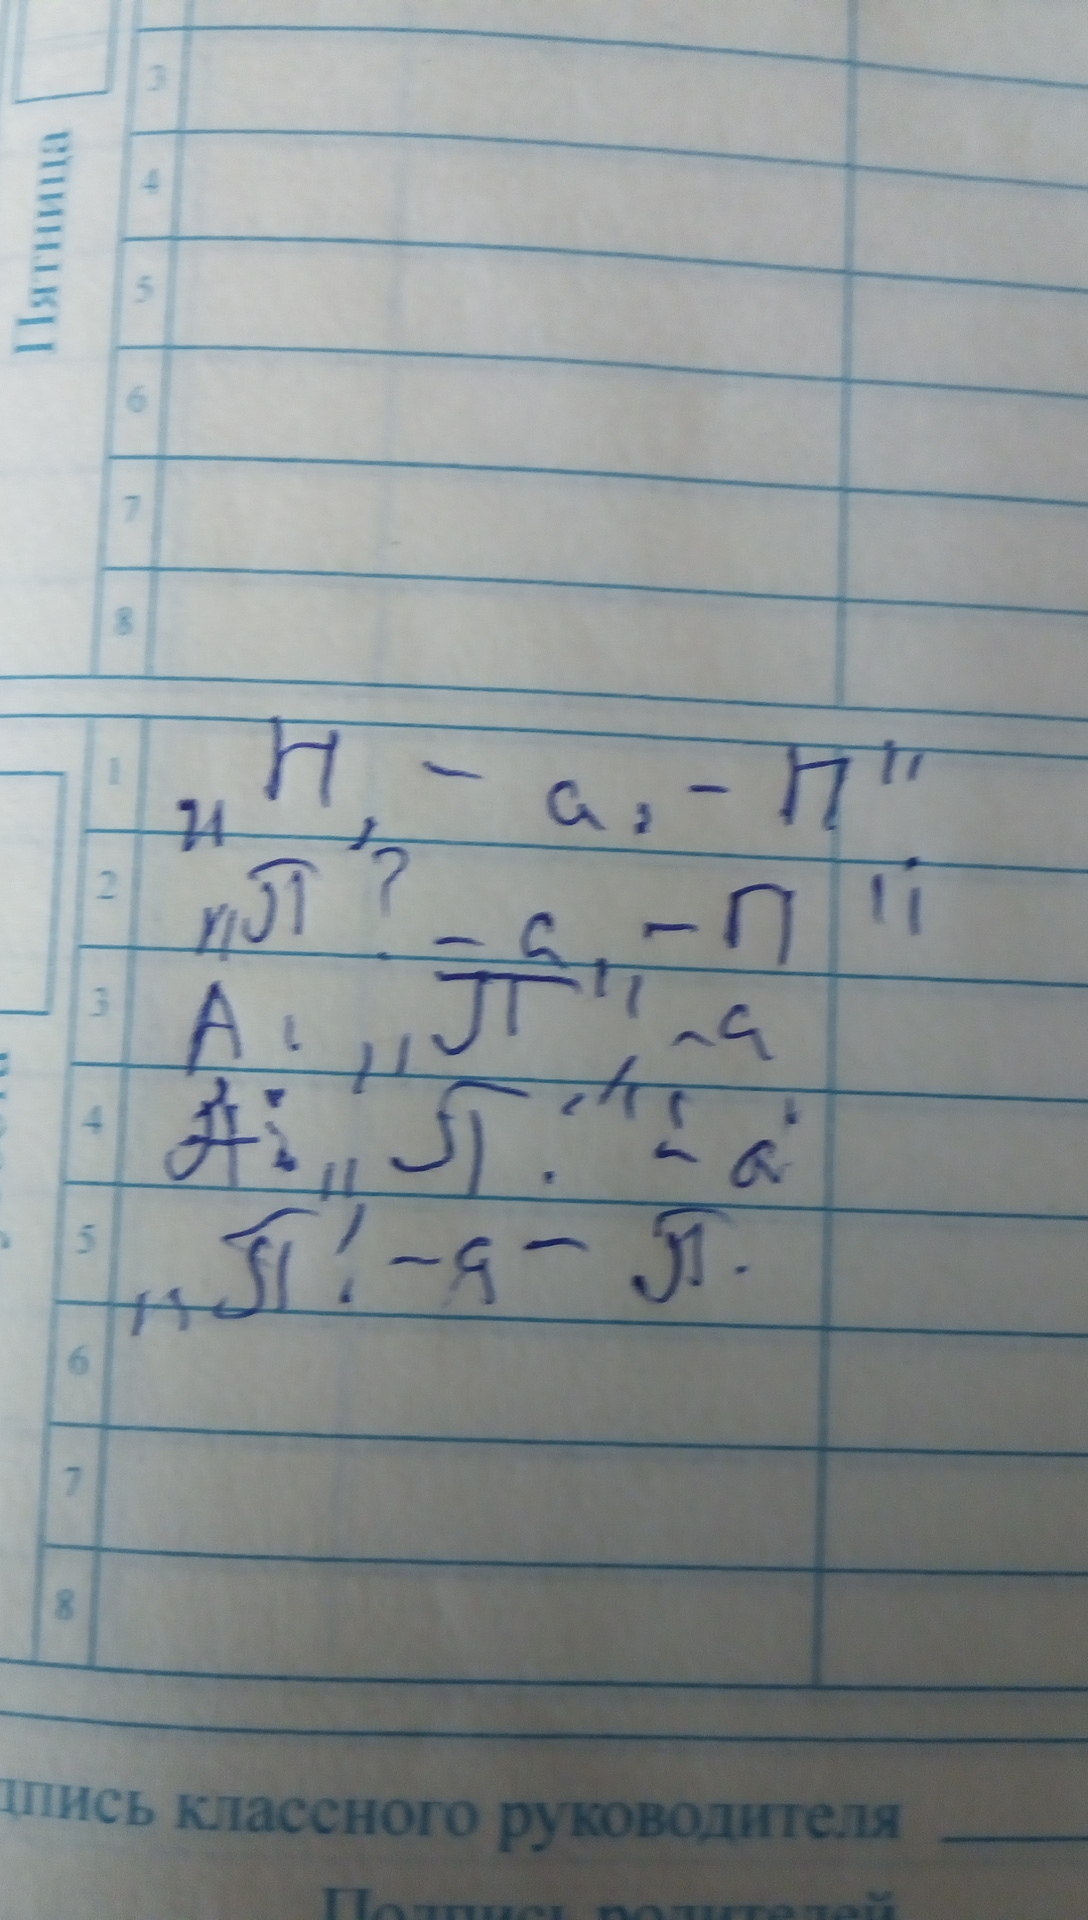 3
4
Пятница
5
6
7
8
1 „П, – а, – П"
2 „П? – а, – П"
3 А: „П", – а
4 „П." – а
5 „П! – а – П.
6
7
8
дпись классного руководителя
Подпись родителей